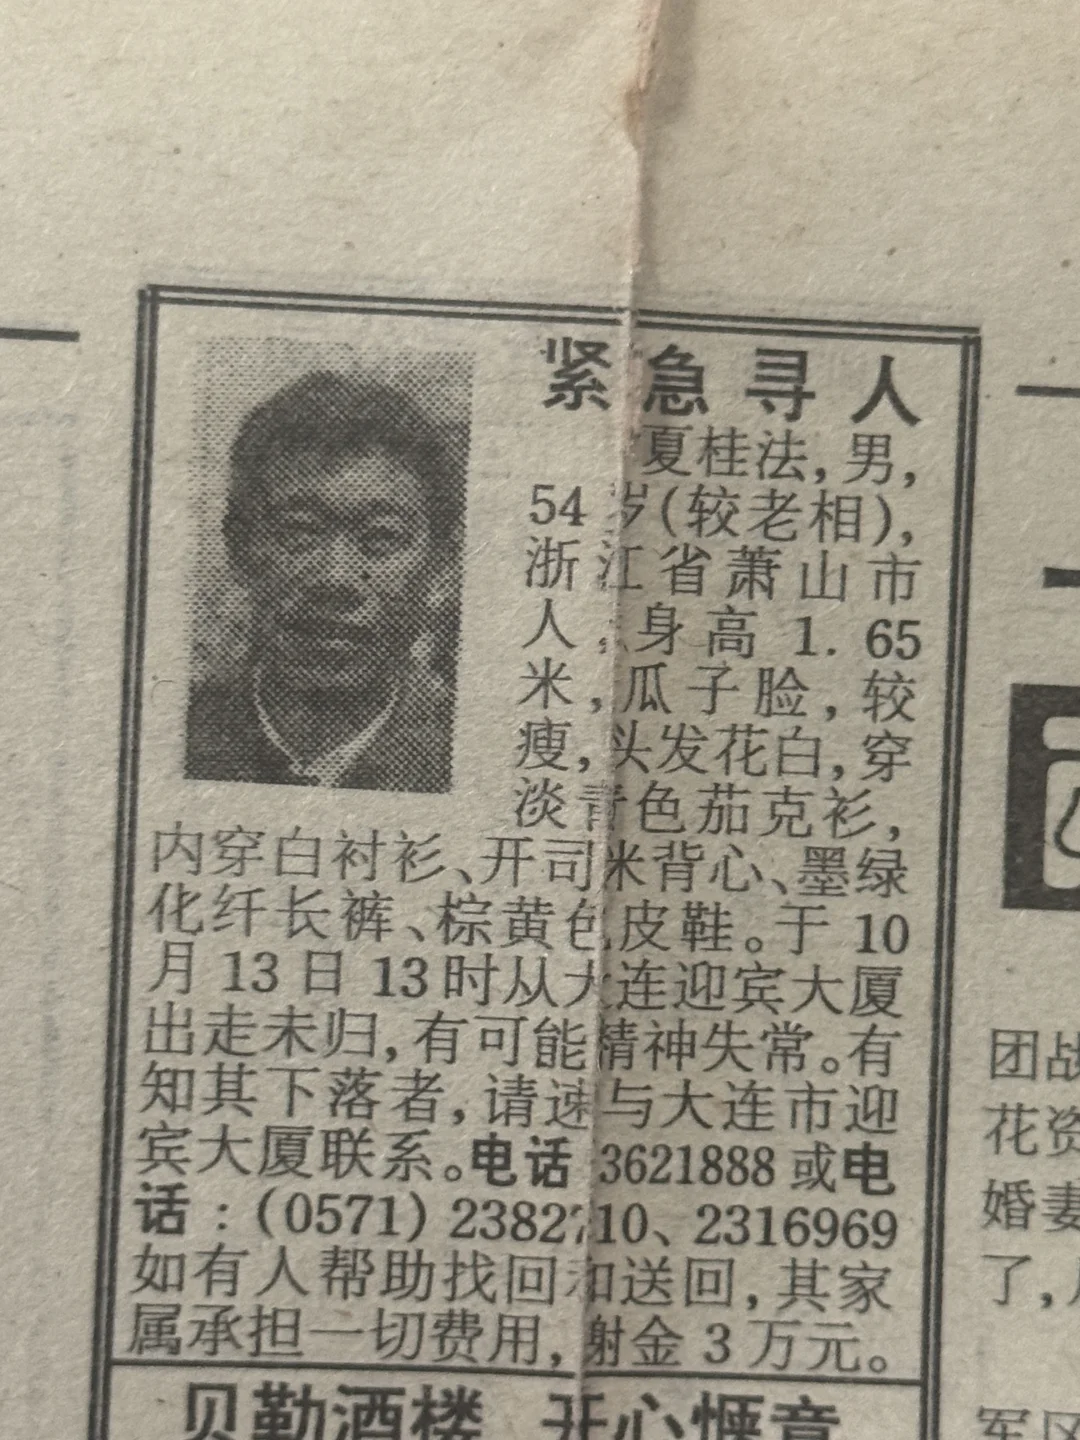 紧急寻人
夏桂法,男,
54岁(较老相),
浙江省萧山市
人,身高1.65
米,瓜子脸,较
瘦,头发花白,穿
淡青色茄克衫,
内穿白衬衫、开司米背心、墨绿
化纤长裤、棕黄色皮鞋。于10
月13日13时从大连迎宾大厦
出走未归,有可能精神失常。有
知其下落者,请速与大连市迎
宾大厦联系。电话 3621888或电
话:(0571) 、2316969
如有人帮助找回和送回,其家
属承担一切费用,谢金3万元。
贝勒酒楼 开心惬意
团战
花资
婚妻
了,
军区